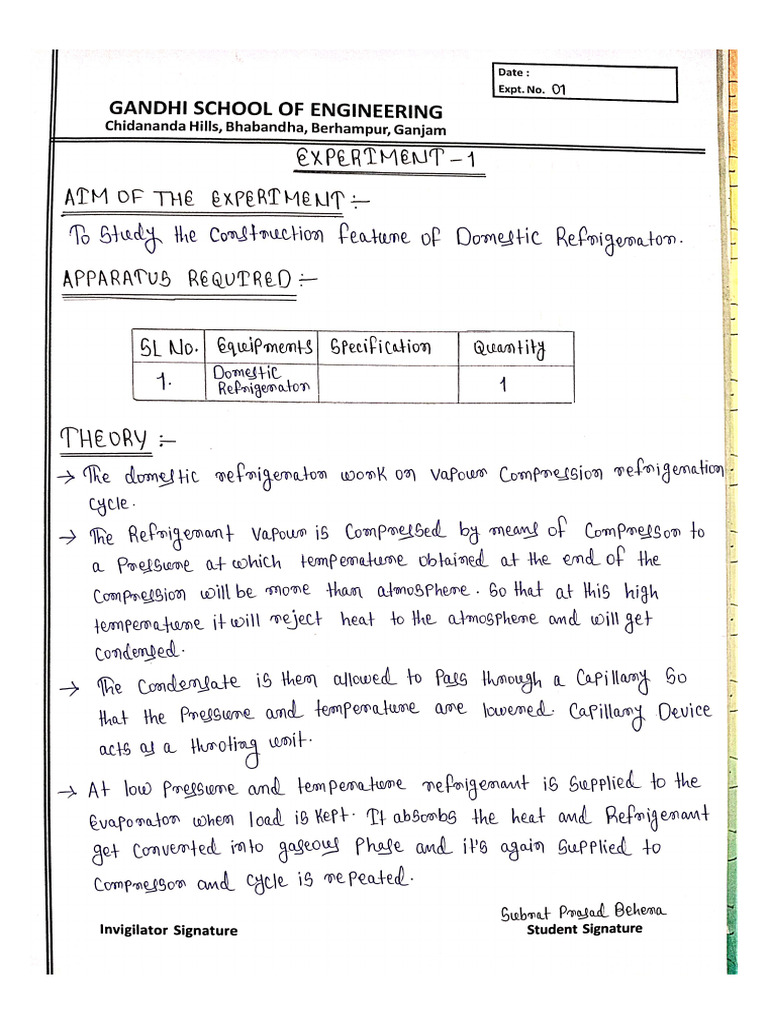 Date :
Expt. No. 01
GANDHI SCHOOL OF ENGINEERING
Chidananda Hills, Bhabandha, Berhampur, Ganjam
EXPERIMENT-1
AIM OF THE EXPERIMENT:-
To Study the Construction feature of Domestic Refrigerator.
APPARATUS REQUIRED:-
SL No. Equipments Specification Quantity
1. Domestic Refrigerator 1
THEORY:-
→ The domestic refrigerator work on vapour Compression refrigeration
cycle.
→ The Refrigerant vapour is Compressed by means of Compressor to
a Pressure at which temperature obtained at the end of the
Compression will be more than atmosphere. So that at this high
temperature it will reject heat to the atmosphere and will get
Condensed.
→ The Condensate is then allowed to Pass through a Capillary So
that the Pressure and temperature are lowered. Capillary Device
acts as a throting unit.
→ At low Pressure and temperature refrigerant is supplied to the
Evaporator when load is Kept. It absorbs the heat and Refrigerant
get Converted into gaseous Phase and it's again Supplied to
Compressor and Cycle is repeated.
Subrat Prasad Behera
Invigilator Signature Student Signature